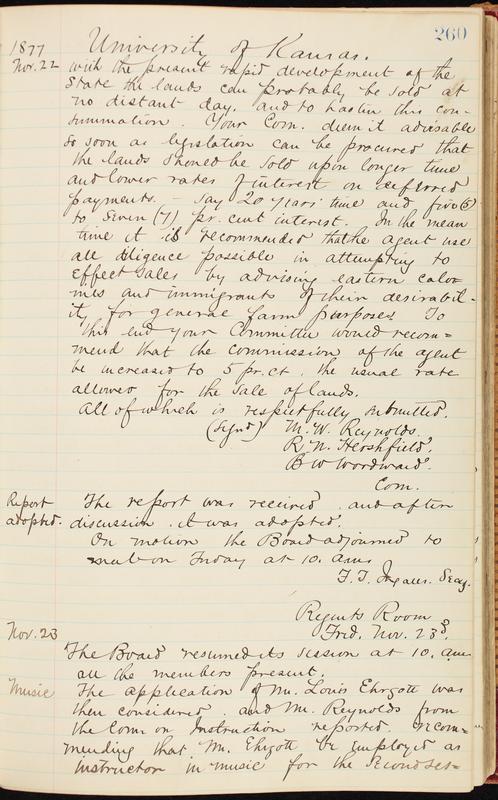 260
1877 University of Kansas.
Nov. 22 with the present rapid development of the
State the lands can probably be sold at
no distant day. and to hasten this con-
summation. Your Com. deem it advisable
so soon as legislation can be procured that
the lands should be sold upon longer time
and lower rates of interest on deferred
payments, - say 20 years' time and five (5)
to seven (7) pr. cent interest. In the mean
time it is recommended that the agent use
all diligence possible in attempting to
effect sales by advising eastern colo-
nies and immigrants of their desirabil-
ity for general farm purposes. To
this end your Committee would recom-
mend that the commission of the agent
be increased to 5 pr. ct. the usual rate
allowed for the sale of lands.
All of which is respectfully submitted.
(Signd) M. W. Reynolds.
R. N. Hershfield.
B W Woodward.
Com.
Report The report was received. and after
adopted. discussion. it was adopted.
On motion the Board adjourned to
meet on Friday at 10. am
F. T. Ingalls. Secy.
Regents Room
Nov. 23 Frid. Nov. 23d.
The Board resumed its session at 10. am
all the members present.
Music The application of Mr. Louis Ehrgott was
then considered. and Mr. Reynolds from
the Com on Instruction reported. recom-
mending that Mr. Ehrgott be employed as
instructor in music for the second ses-